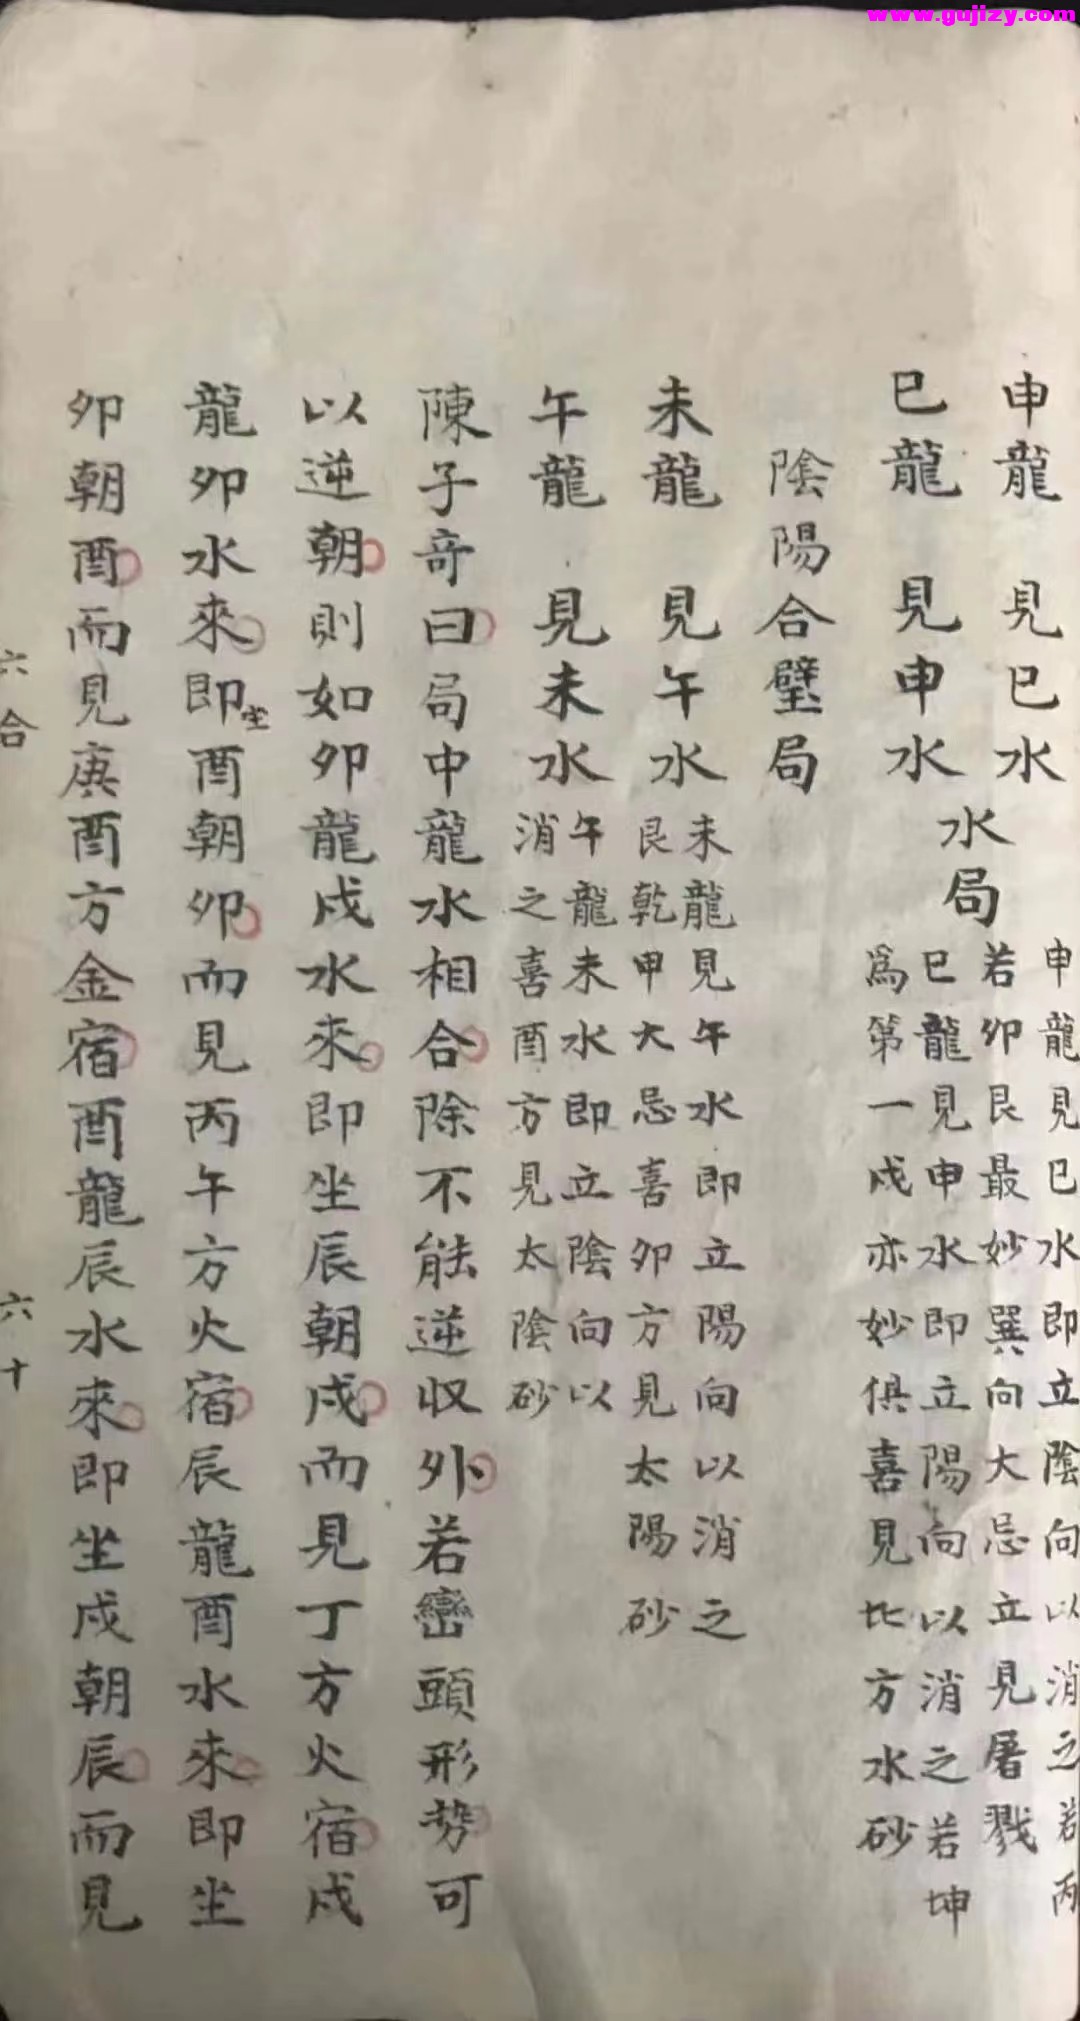 www.gujizy.com
申龍　見巳水
巳龍　見申水
水局
申龍見巳水即立陰向以消之若丙
若卯艮最妙巽向大忌立見屠戮
巳龍見申水即立陽向以消之若坤
為第一戍亦妙俱喜見比方水砂
陰陽合璧局
未龍　見午水
未龍見午水即立陽向以消之
艮乾申大忌喜卯方見太陽砂
午龍　見未水
午龍未水即立陰向以
消之喜酉方見太陰砂
陳子奇曰局中龍水相合除不能逆收外若巒頭形势可
以逆朝則如卯龍戍水來即坐辰朝戍而見丁方火宿戍
龍卯水來即坐酉朝卯而見丙午方火宿辰龍酉水來即坐
卯朝酉而見庚酉方金宿酉龍辰水來即坐戍朝辰而見
六合
六十